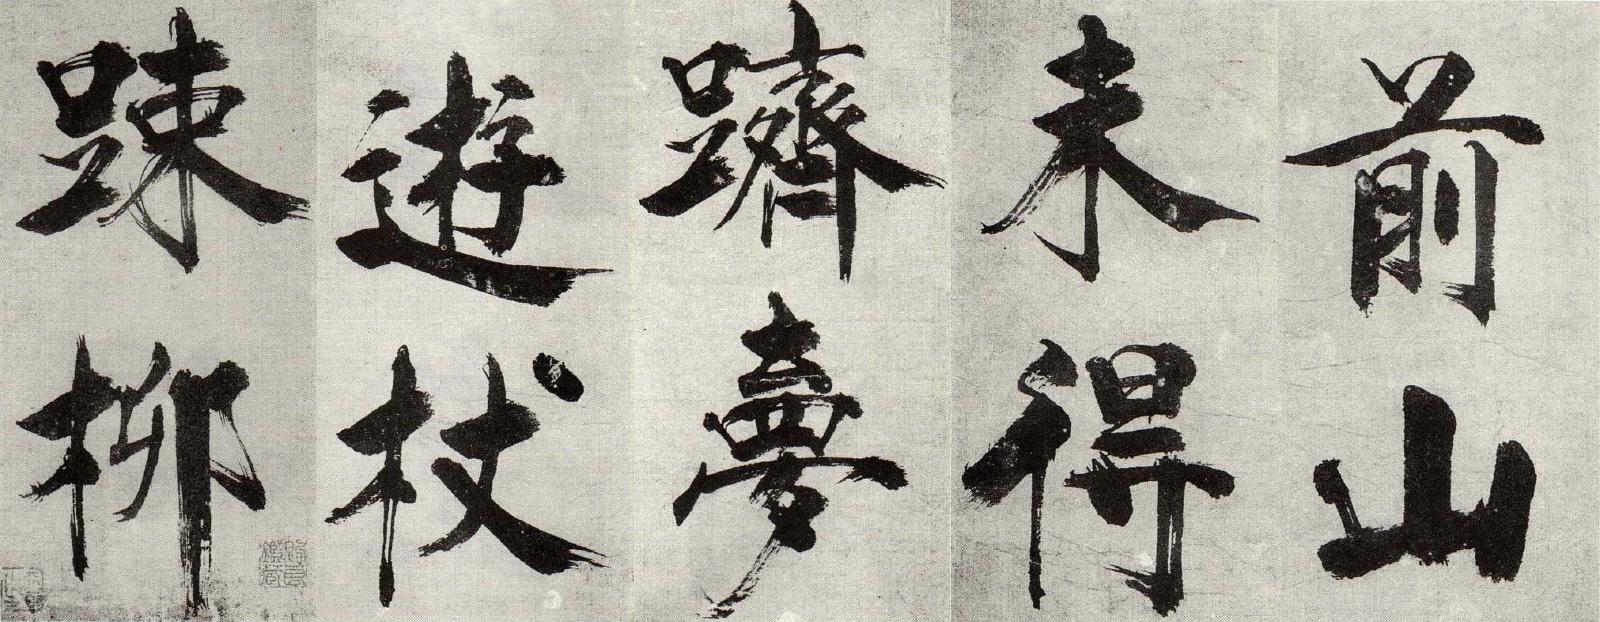 前山
未得
躋夢
遊杖
踈柳